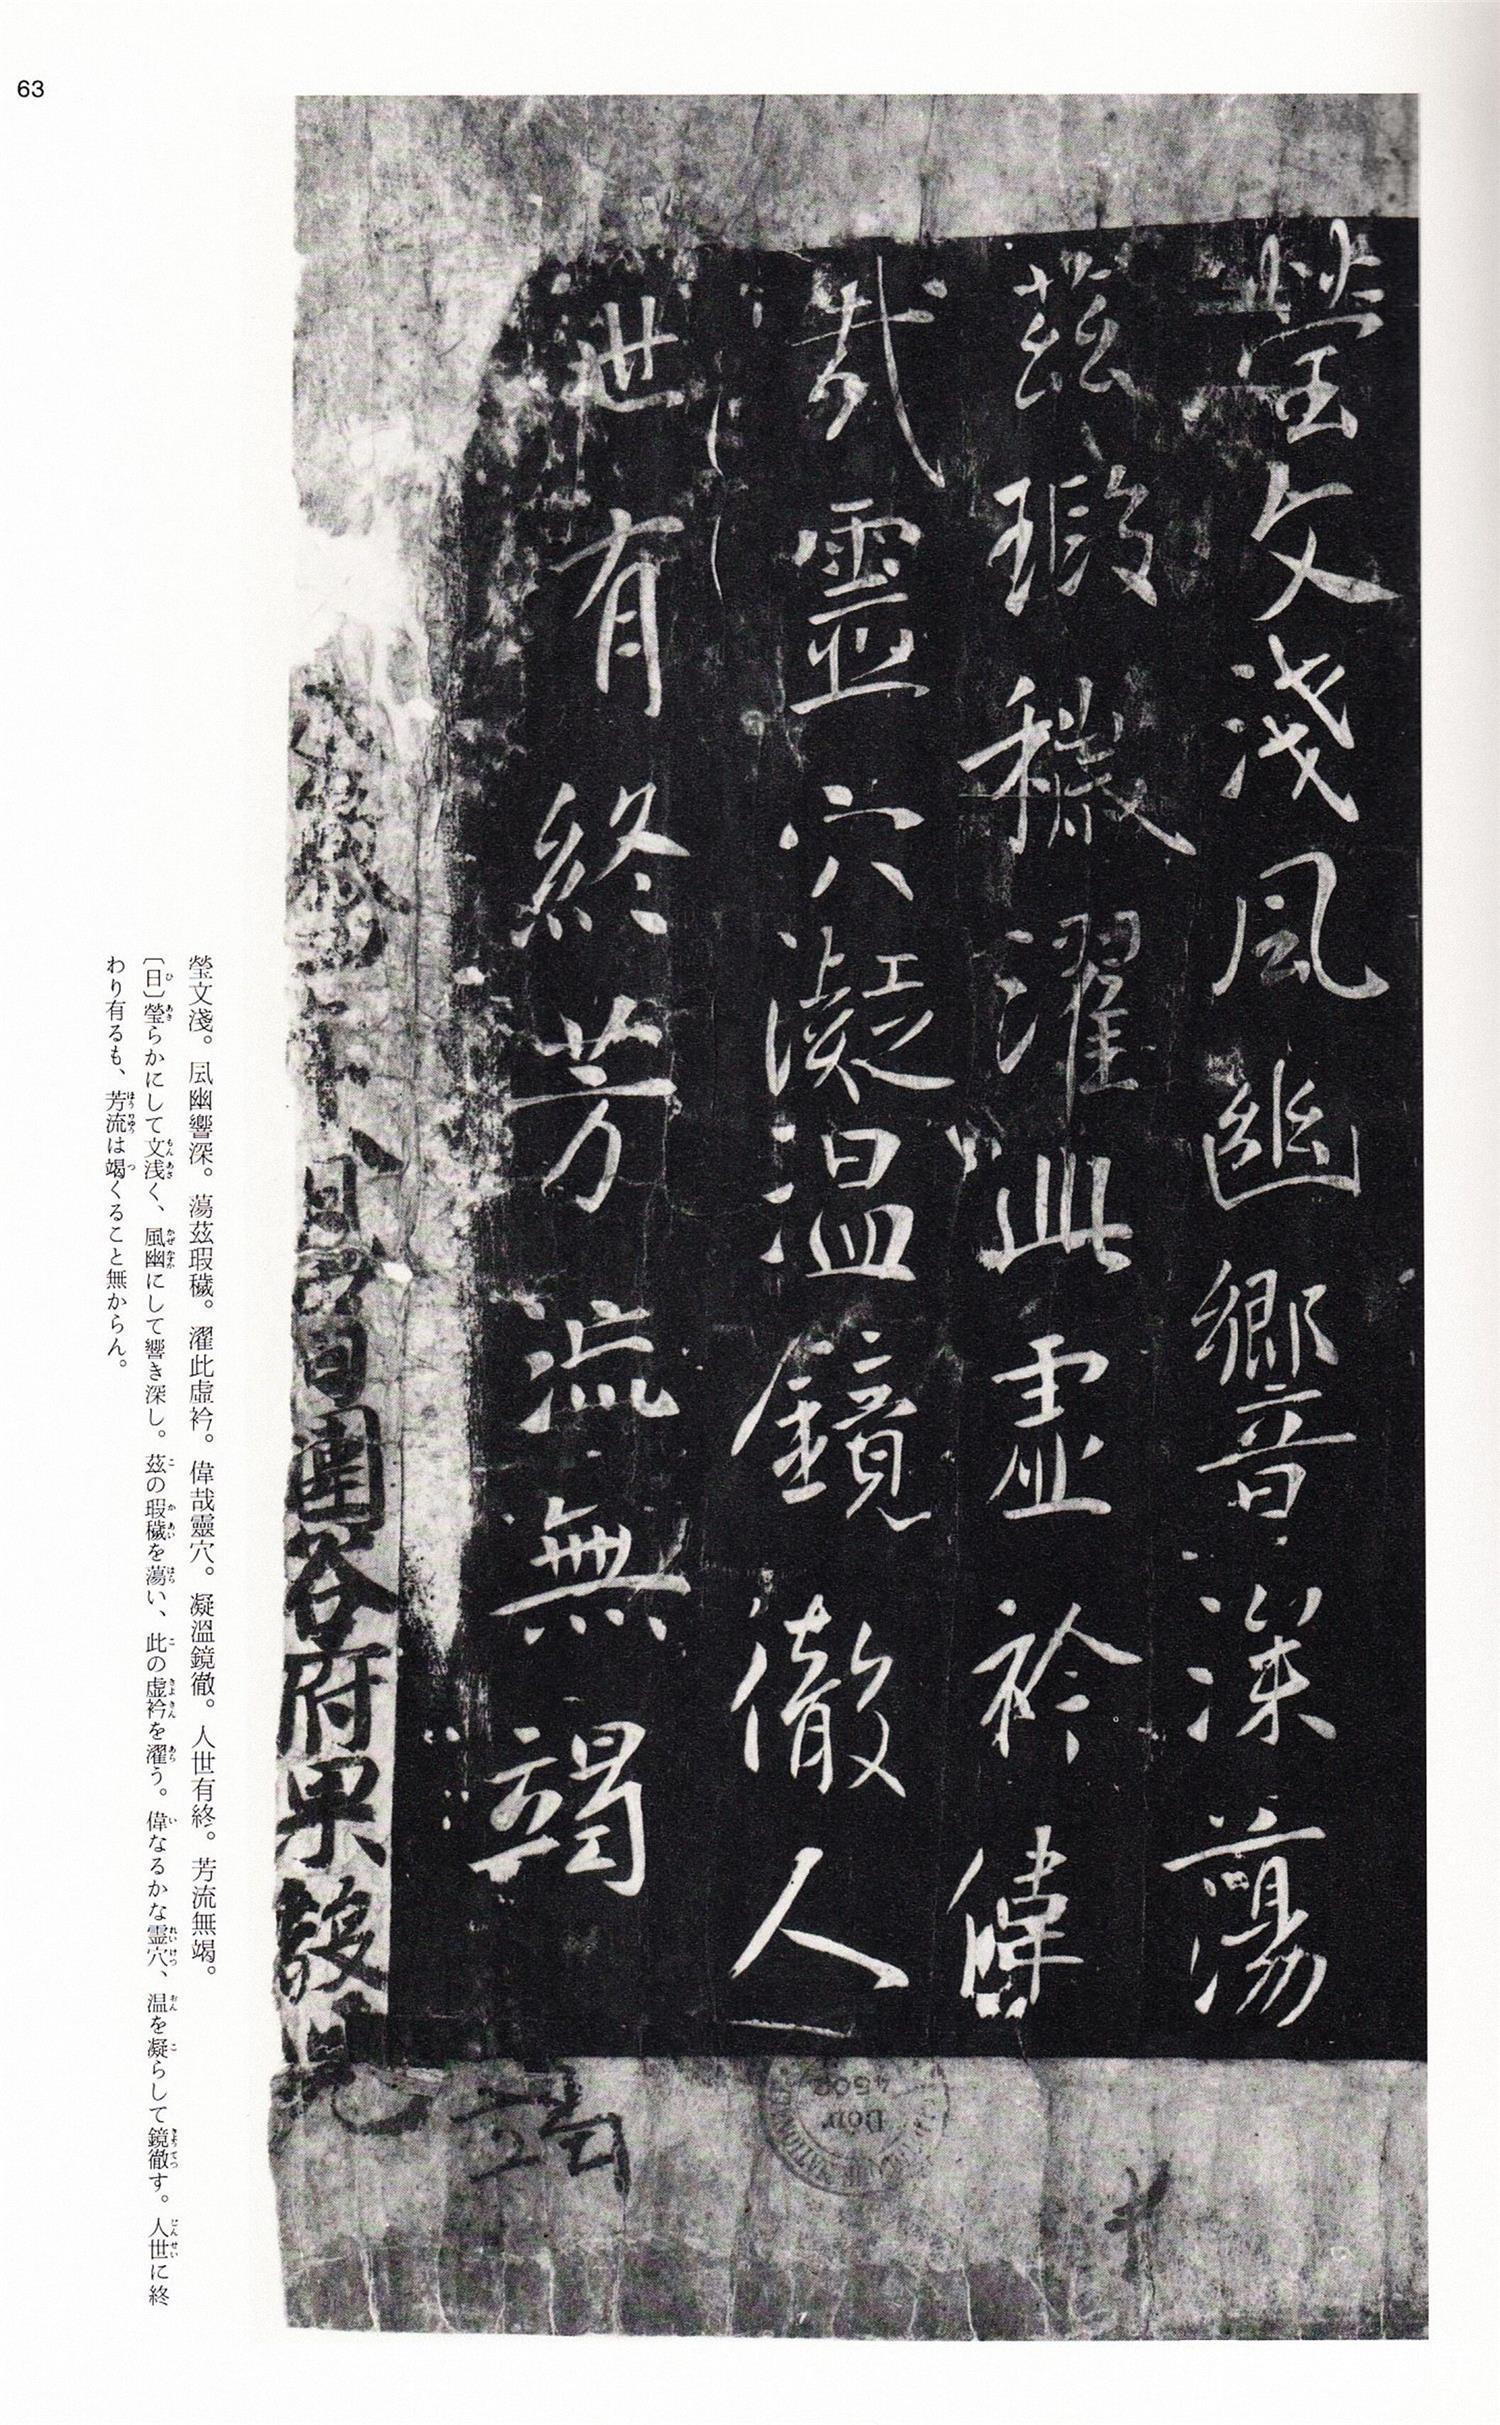 63
瑩文淺風幽響深蕩
茲瑕穢濯此虛衿偉
哉靈穴凝溫鏡徹人
世有終芳流無竭
圍谷府果毅
瑩文淺。風幽響深。蕩茲瑕穢。濯此虛衿。偉哉靈穴。凝溫鏡徹。人世有終。芳流無竭。
〔日〕瑩らかにして文浅く、風幽にして響き深し。茲の瑕穢を蕩い、此の虚衿を濯う。偉なるかな霊穴、温を凝らして鏡徹す。人世に終
わり有るも、芳流は竭くること無からん。
Don
4508